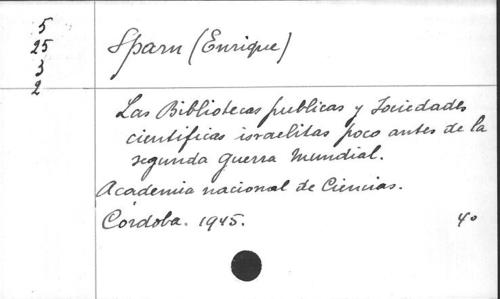 5
25
3
2
Sparn (Enrique)
Las Bibliotecas publicas y Sociedades
cientificas israelitas poco antes de la
segunda guerra mundial.
Academia nacional de Ciencias.
Córdoba. 1945. 4º